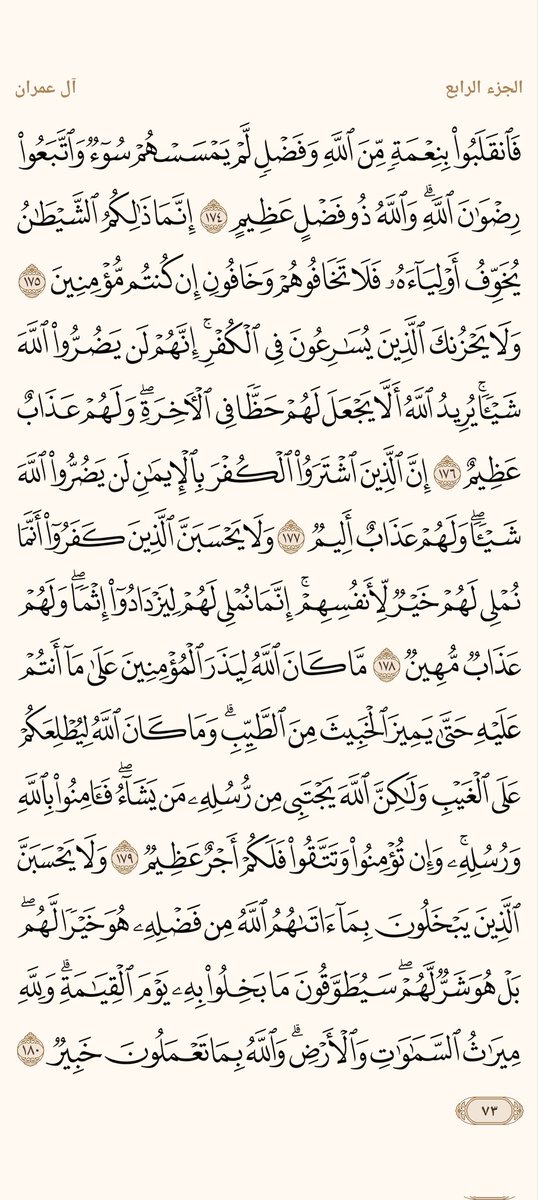 الجزء الرابع
آل عمران
فَٱنقَلَبُواْ بِنِعۡمَةٖ مِّنَ ٱللَّهِ وَفَضۡلٖ لَّمۡ يَمۡسَسۡهُمۡ سُوٓءٞ وَٱتَّبَعُواْ
رِضۡوَٰنَ ٱللَّهِۗ وَٱللَّهُ ذُو فَضۡلٍ عَظِيمٍ ١٧٤ إِنَّمَا ذَٰلِكُمُ ٱلشَّيۡطَٰنُ
يُخَوِّفُ أَوۡلِيَآءَهُۥ فَلَا تَخَافُوهُمۡ وَخَافُونِ إِن كُنتُم مُّؤۡمِنِينَ ١٧٥
وَلَا يَحۡزُنكَ ٱلَّذِينَ يُسَٰرِعُونَ فِي ٱلۡكُفۡرِۚ إِنَّهُمۡ لَن يَضُرُّواْ ٱللَّهَ
شَيۡـٔٗاۚ يُرِيدُ ٱللَّهُ أَلَّا يَجۡعَلَ لَهُمۡ حَظّٗا فِي ٱلۡأٓخِرَةِۖ وَلَهُمۡ عَذَابٌ
عَظِيمٌ ١٧٦ إِنَّ ٱلَّذِينَ ٱشۡتَرَوُاْ ٱلۡكُفۡرَ بِٱلۡإِيمَٰنِ لَن يَضُرُّواْ ٱللَّهَ
شَيۡـٔٗاۖ وَلَهُمۡ عَذَابٌ أَلِيمٞ ١٧٧ وَلَا يَحۡسَبَنَّ ٱلَّذِينَ كَفَرُوٓاْ أَنَّمَا
نُمۡلِي لَهُمۡ خَيۡرٞ لِّأَنفُسِهِمۡۚ إِنَّمَا نُمۡلِي لَهُمۡ لِيَزۡدَادُوٓاْ إِثۡمٗاۖ وَلَهُمۡ
عَذَابٞ مُّهِينٞ ١٧٨ مَّا كَانَ ٱللَّهُ لِيَذَرَ ٱلۡمُؤۡمِنِينَ عَلَىٰ مَآ أَنتُمۡ
عَلَيۡهِ حَتَّىٰ يَمِيزَ ٱلۡخَبِيثَ مِنَ ٱلطَّيِّبِۗ وَمَا كَانَ ٱللَّهُ لِيُطۡلِعَكُمۡ
عَلَى ٱلۡغَيۡبِ وَلَٰكِنَّ ٱللَّهَ يَجۡتَبِي مِن رُّسُلِهِۦ مَن يَشَآءُۖ فَـَٔامِنُواْ بِٱللَّهِ
وَرُسُلِهِۦۚ وَإِن تُؤۡمِنُواْ وَتَتَّقُواْ فَلَكُمۡ أَجۡرٌ عَظِيمٞ ١٧٩ وَلَا يَحۡسَبَنَّ
ٱلَّذِينَ يَبۡخَلُونَ بِمَآ ءَاتَىٰهُمُ ٱللَّهُ مِن فَضۡلِهِۦ هُوَ خَيۡرٗا لَّهُمۖ
بَلۡ هُوَ شَرّٞ لَّهُمۡۖ سَيُطَوَّقُونَ مَا بَخِلُواْ بِهِۦ يَوۡمَ ٱلۡقِيَٰمَةِۗ وَلِلَّهِ
مِيرَٰثُ ٱلسَّمَٰوَٰتِ وَٱلۡأَرۡضِۗ وَٱللَّهُ بِمَا تَعۡمَلُونَ خَبِيرٞ ١٨٠
٧٣